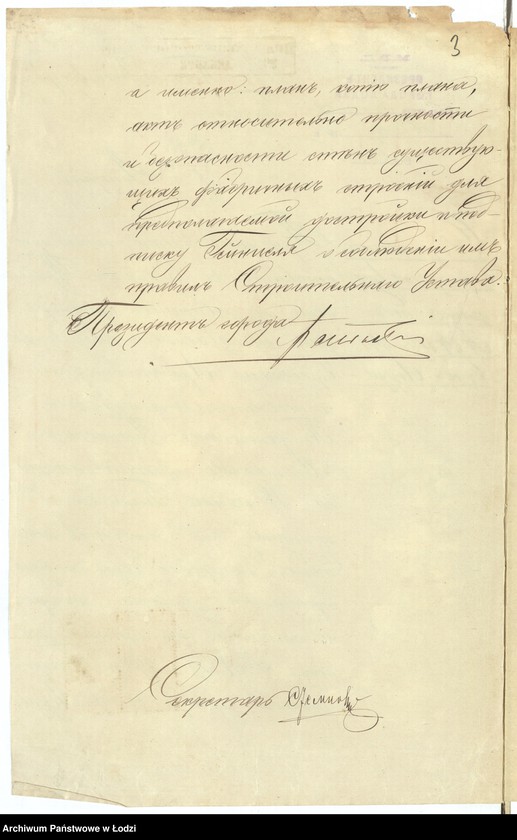 3
а именно: планъ, копію плана,
актъ относительно прочности
и безопасности стѣнъ существую-
щихъ фабричныхъ строеній для
предполагаемой достройки и под-
писку Гейнцеля о соблюденіи имъ
правилъ Строительнаго Устава.
Президентъ города
Секретарь
Archiwum Państwowe w Łodzi